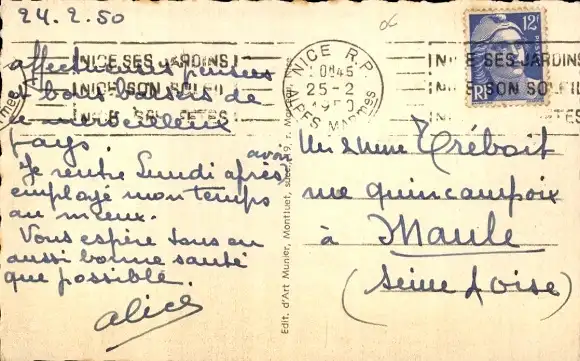 24.2.50
affectueuses pensées
et bons baisers de
ce merveilleux
pays.
Je rentre Lundi après avoir
employé mon temps
au mieux.
Vous espère tous en
aussi bonne santé
que possible.
Alice
NICE SES JARDINS
SON SOLEIL
SES FETES
NICE R.P.
10H45
25-2
1950
ALPES MARMES
12F
RF
NICE SES JARDINS
SON SOLEIL
Edit. d'Art Munier, Montluet, succ., 19, r.
Mr & Mme Tréboit
rue quincampoix
à Maule
(Seine & Oise)